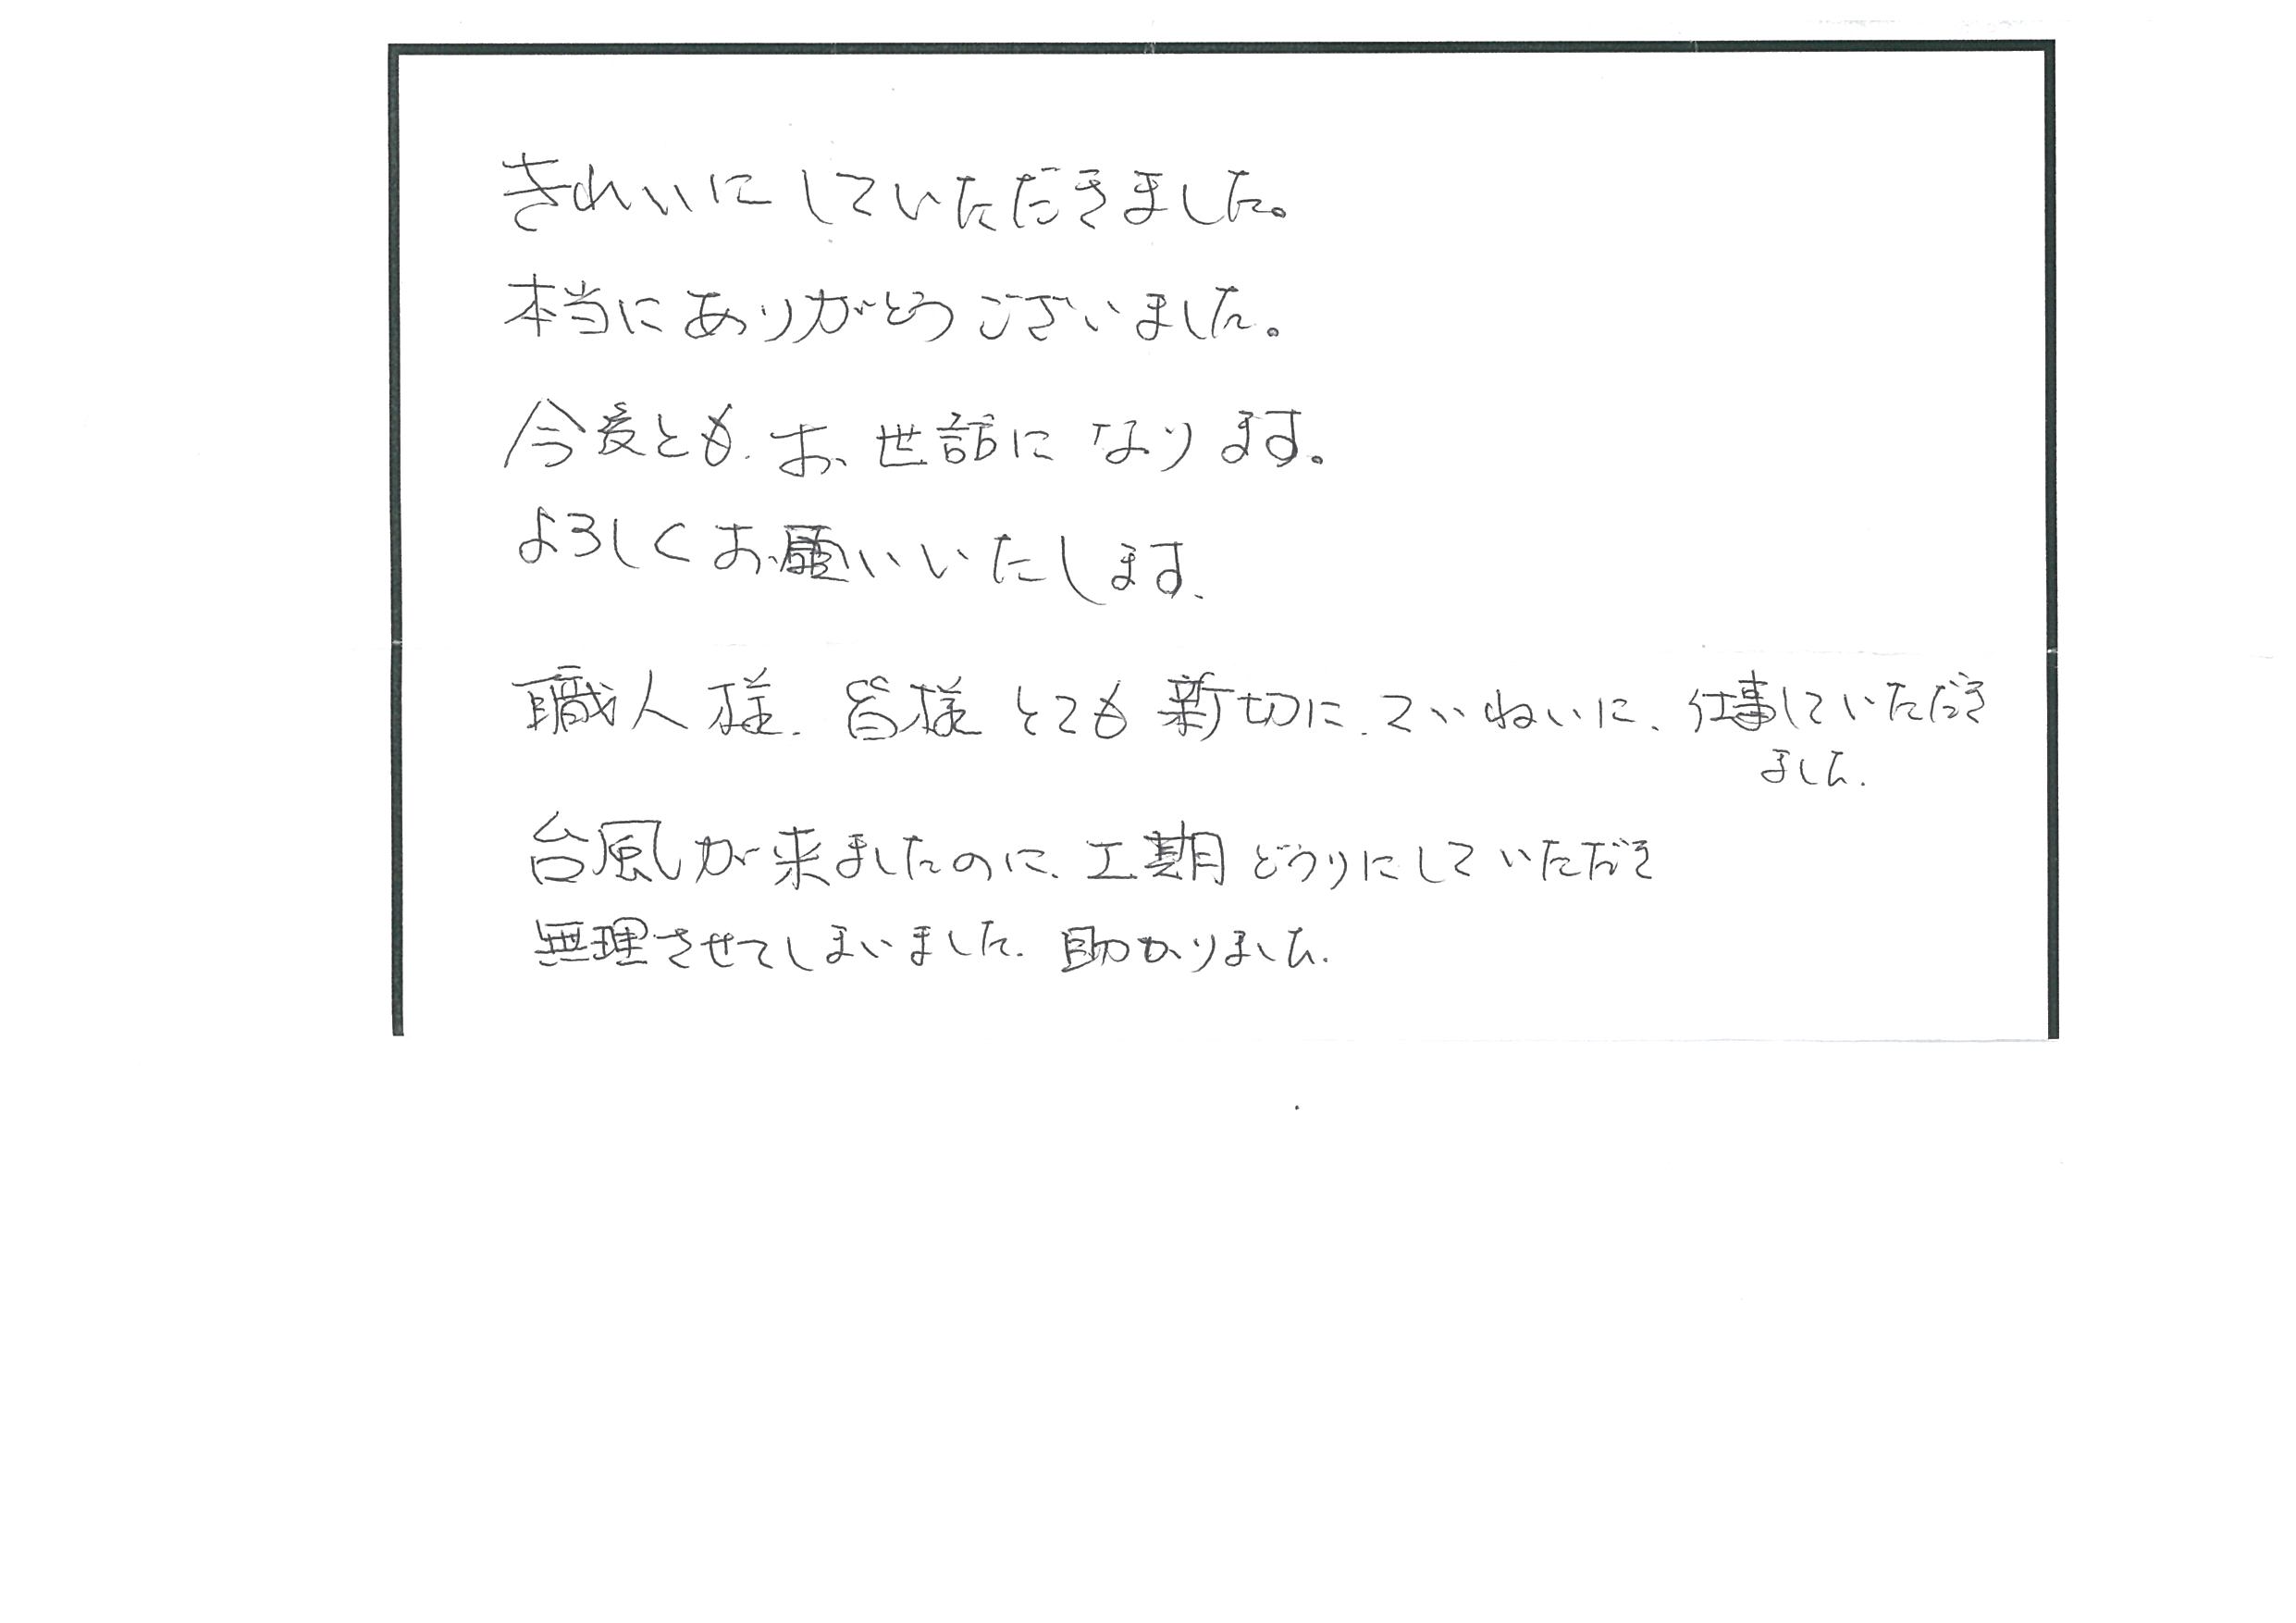 きれいにしていただきました。
本当にありがとうございました。
今後とも、お世話になります。
よろしくお願いいたします、
職人様、皆様とても新切に、ていねいに、仕事していただき
ました、
台風が来ましたのに、工期どうりにしていただき
無理させてしまいました、助かりました、